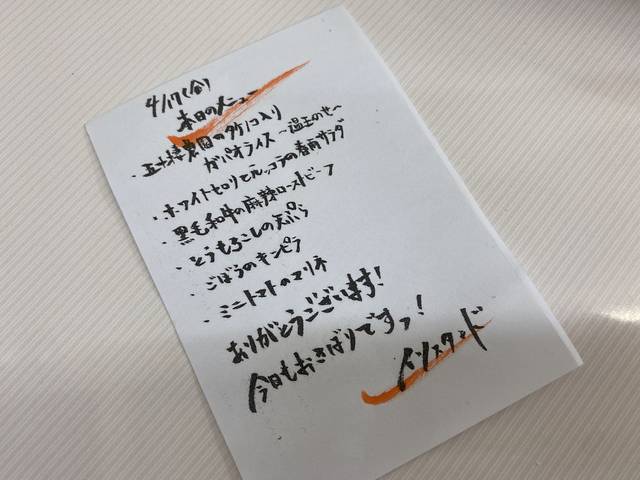 4/17(金)
本日のメニュー
・五十嵐農園のタケノコ入り
ガパオライス 〜温玉のせ〜
・ホワイトセロリとルッコラの春雨サラダ
・黒毛和牛の麻辣ローストビーフ
・とうもろこしの天ぷら
・ごぼうのキンピラ
・ミニトマトのマリネ
ありがとうございます!
今日もおさばりですっ!